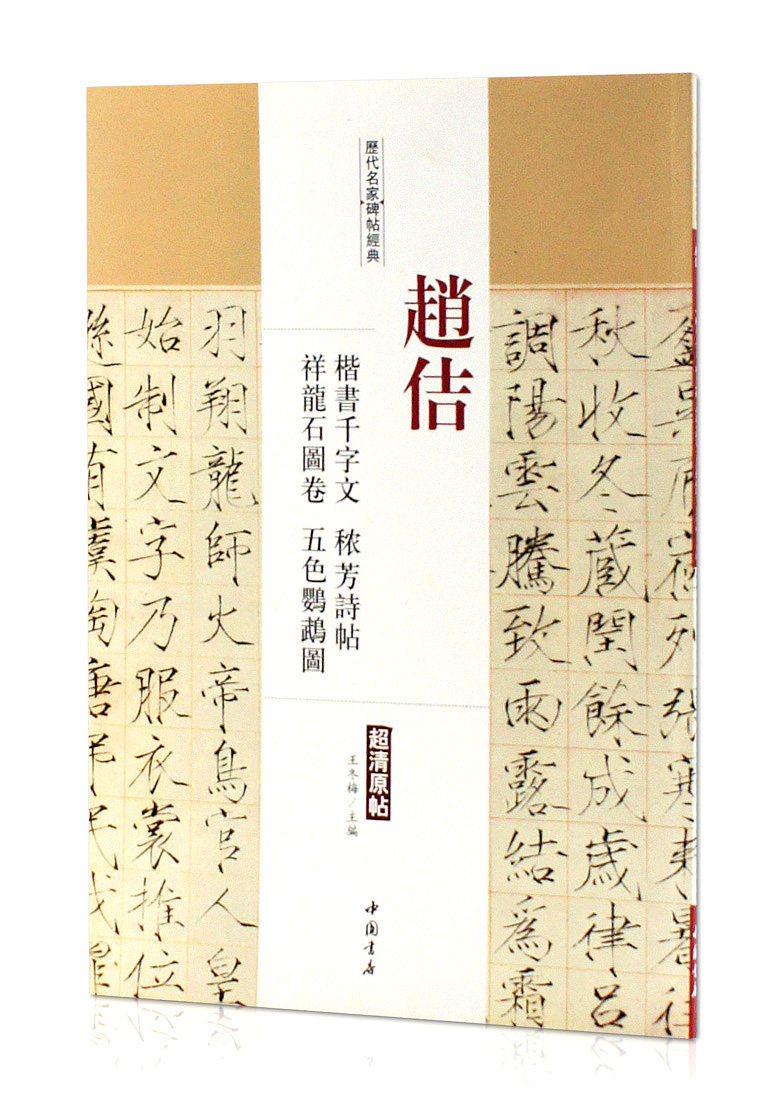 歷代名家碑帖經典
趙佶
楷書千字文 穠芳詩帖
祥龍石圖卷 五色鸚鵡圖
超清原帖
王冬梅/主編
中国書店
盈昃辰宿列張寒來暑往
秋收冬藏閏餘成歲律呂
調陽雲騰致雨露結為霜
羽翔龍師火帝鳥官人皇
始制文字乃服衣裳推位
遜國有虞陶唐弔民伐罪